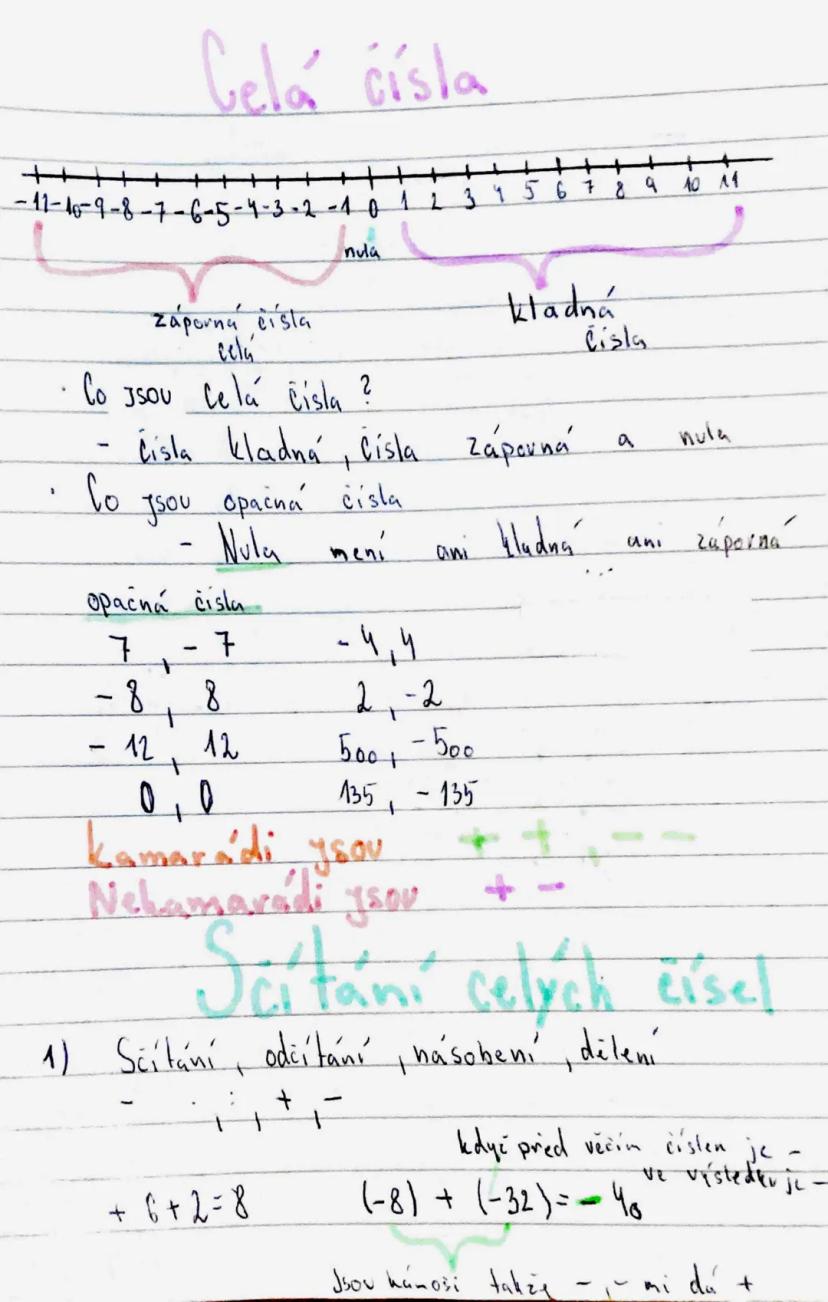 Celá čísla
-11 -10 -9 -8 -7 -6 -5 -4 -3 -2 -1 0 1 2 3 4 5 6 7 8 9 10 11
nula
záporná čísla
celá
kladná
čísla
· Co jsou celá čísla?
- čísla kladná, čísla záporná a nula
· Co jsou opačná čísla
- Nula není ani kladná ani záporná
opačná čísla
7, -7 -4, 4
-8, 8 2, -2
-12, 12 500, -500
0, 0 135, -135
kamarádi jsou + + , - -
Nekamarádi jsou + -
Sčítání celých čísel
1) Sčítání, odčítání, násobení, dělení
- · , : , + , -
když před věčím číslen je -
ve výsledku je -
+ 6 + 2 = 8 (-8) + (-32) = - 40
Jsou takže -, - mi dá +